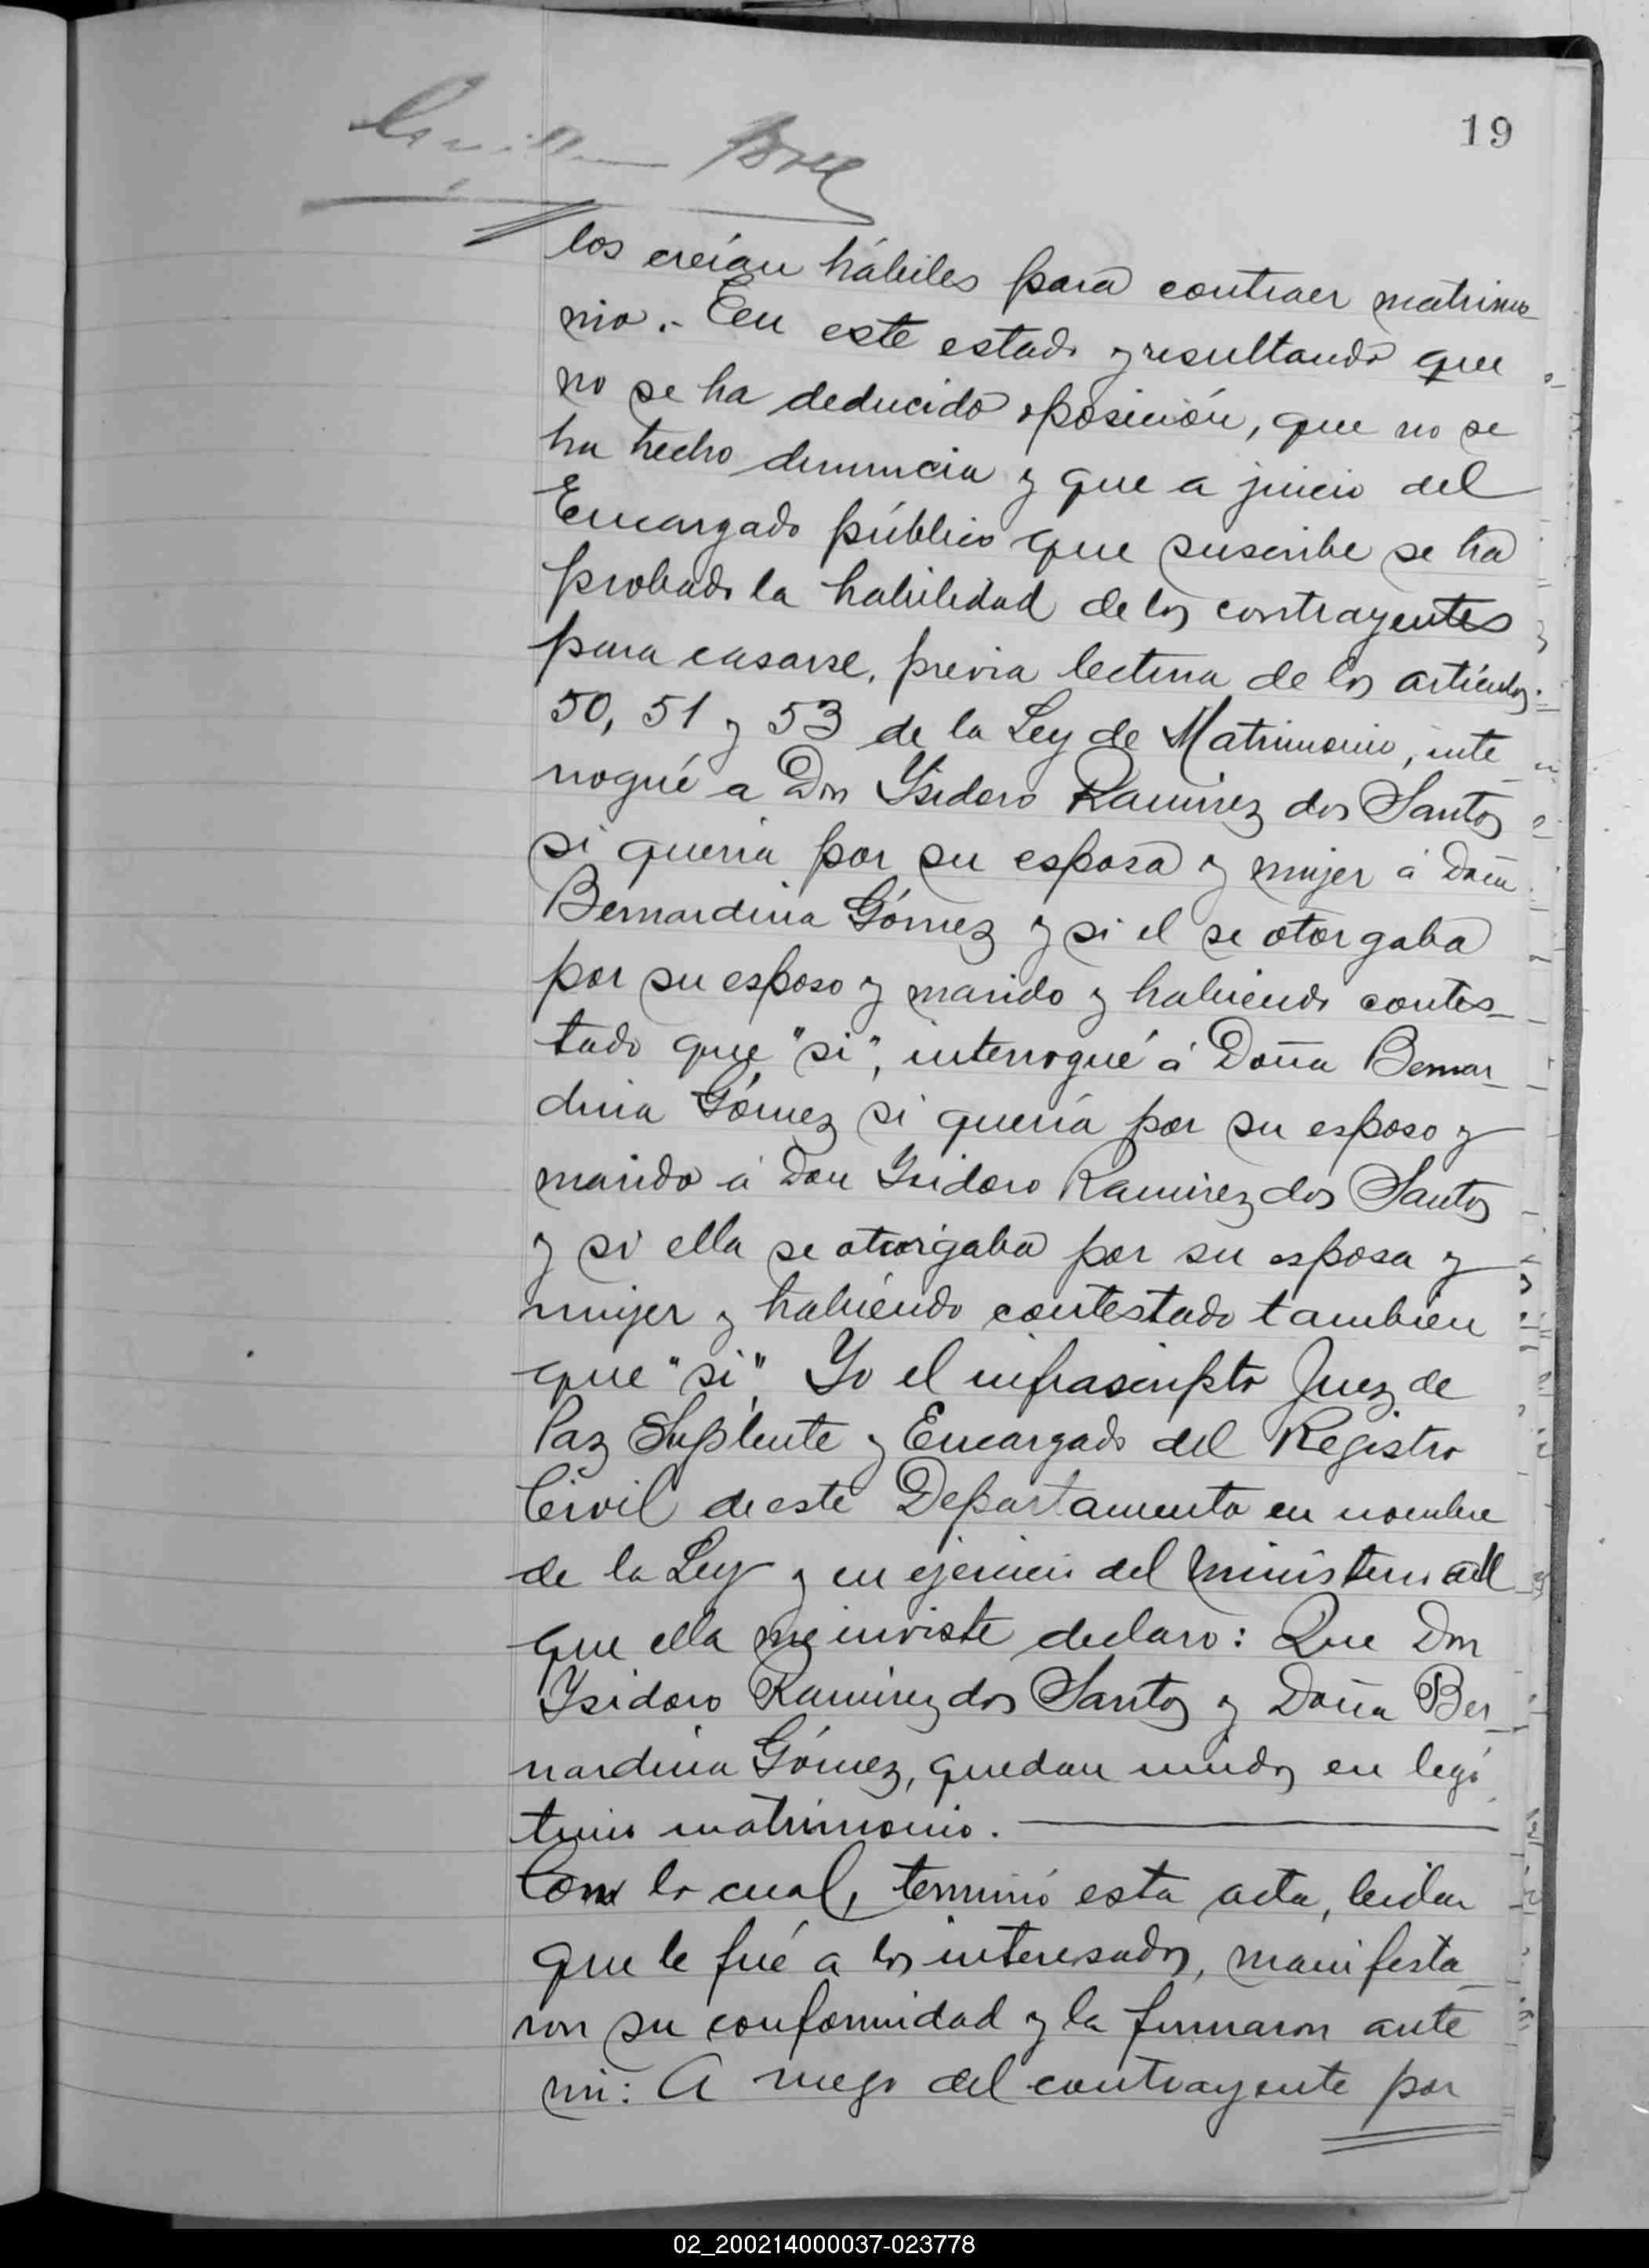 19
los creían hábiles para contraer matrimo
nio.- En este estado y resultando que
no se ha deducido oposición, que no se
ha hecho denuncia y que a juicio del
Encargado público que suscribe se ha
probado la habilidad de los contrayentes
para casarse, previa lectura de los artículos
50, 51 y 53 de la Ley de Matrimonio, inte
rrogué a Don Ysidoro Ramirez dos Santos
si quería por su esposa y mujer á Doña
Bernardina Gómez y si el se otorgaba
por su esposo y marido y habiendo contes-
tado que "si", interrogué á Doña Bernar-
dina Gómez si quería por su esposo y
marido á Don Ysidoro Ramirez dos Santos
y si ella se otorgaba por su esposa y
mujer y habiendo contestado tambien
que "si". Yo el infrascripto Juez de
Paz Suplente y Encargado del Registro
Civil de este Departamento en nombre
de la Ley y en ejercicio del ministerio
que ella me inviste declaro: Que Don
Ysidoro Ramirez dos Santos y Doña Ber-
nardina Gómez, quedan unidos en legí
timo matrimonio.
Con lo cual, terminó esta acta, leida
que le fué a los interesados, manifesta-
ron su conformidad y la firmaron ante
mi: A ruego del contrayente por
02_200214000037-023778